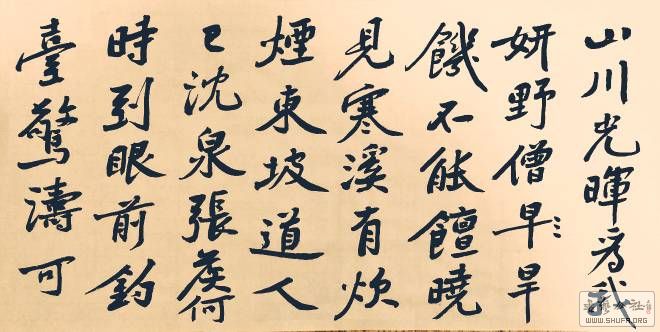 山川光暉為我
妍野僧早旱
饑不能饘曉
見寒溪有炊
煙東坡道人
已沈泉張侯何
時到眼前釣
臺驚濤可
WWW.SHUFA.ORG